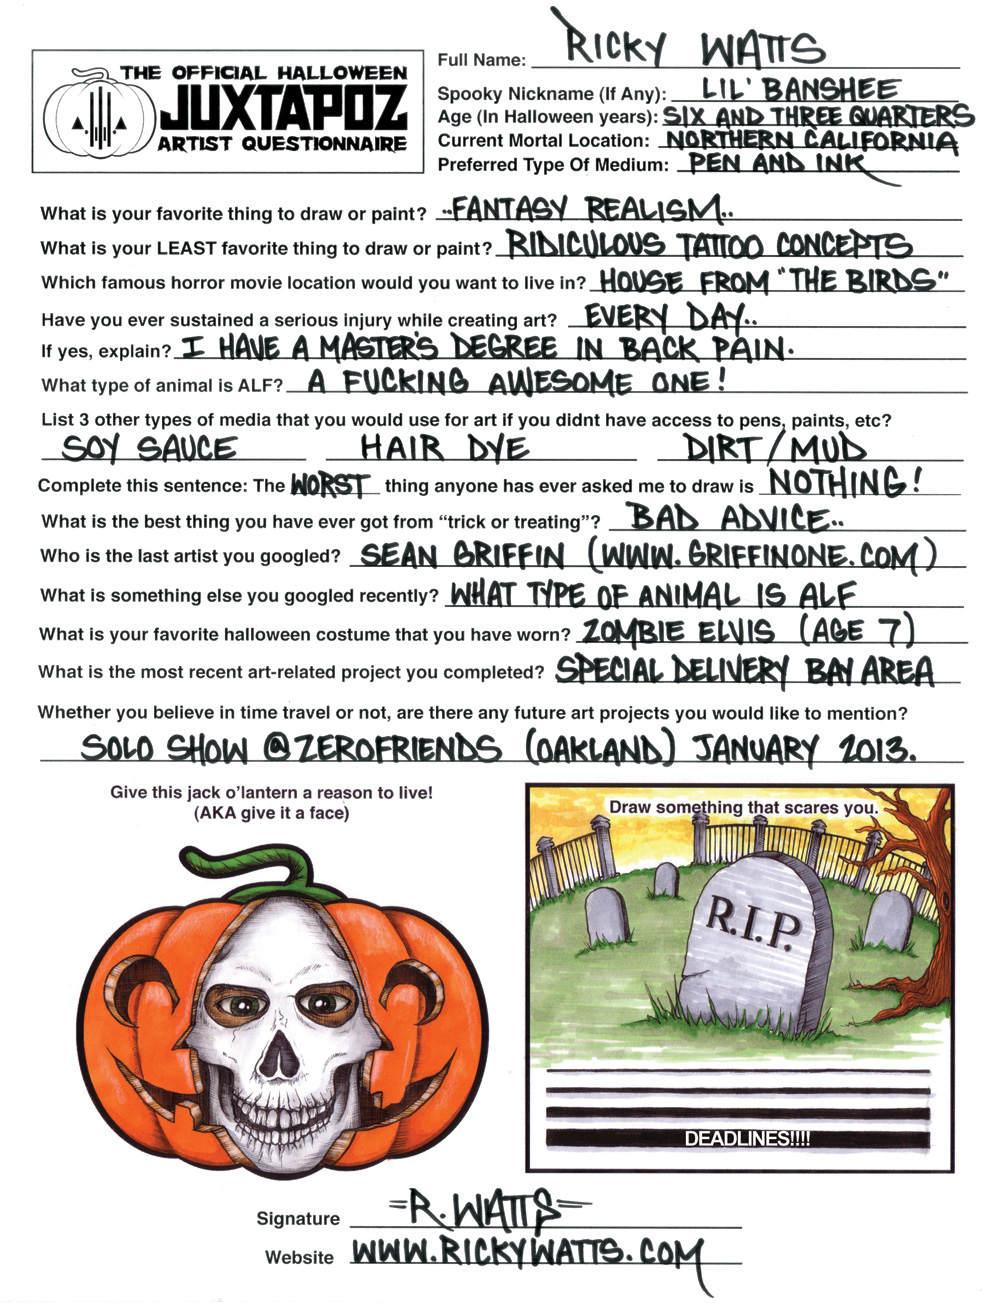 THE OFFICIAL HALLOWEEN
JUXTAPOZ
ARTIST QUESTIONNAIRE
Full Name: RICKY WATTS
Spooky Nickname (If Any): LIL' BANSHEE
Age (In Halloween years): SIX AND THREE QUARTERS
Current Mortal Location: NORTHERN CALIFORNIA
Preferred Type Of Medium: PEN AND INK
What is your favorite thing to draw or paint? ..FANTASY REALISM..
What is your LEAST favorite thing to draw or paint? RIDICULOUS TATTOO CONCEPTS
Which famous horror movie location would you want to live in? HOUSE FROM "THE BIRDS"
Have you ever sustained a serious injury while creating art? EVERY DAY..
If yes, explain? I HAVE A MASTER'S DEGREE IN BACK PAIN.
What type of animal is ALF? A FUCKING AWESOME ONE!
List 3 other types of media that you would use for art if you didnt have access to pens, paints, etc?
SOY SAUCE HAIR DYE DIRT/MUD
Complete this sentence: The WORST thing anyone has ever asked me to draw is NOTHING!
What is the best thing you have ever got from “trick or treating”? BAD ADVICE..
Who is the last artist you googled? SEAN GRIFFIN (WWW.GRIFFINONE.COM)
What is something else you googled recently? WHAT TYPE OF ANIMAL IS ALF
What is your favorite halloween costume that you have worn? ZOMBIE ELVIS (AGE 7)
What is the most recent art-related project you completed? SPECIAL DELIVERY BAY AREA
Whether you believe in time travel or not, are there any future art projects you would like to mention?
SOLO SHOW @ZEROFRIENDS (OAKLAND) JANUARY 2013.
Give this jack o’lantern a reason to live!
(AKA give it a face)
Draw something that scares you.
R.I.P.
DEADLINES!!!!
Signature =R.WATTS=
Website WWW.RICKYWATTS.COM